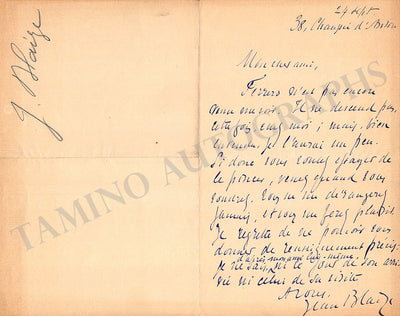 J. Blaize
24 sept
38, Champs d'Aviron
Mon cher ami,
Ferrero n'est pas encore
venu me voir. Il ne descend pas,
cette fois, chez moi ; mais, bien
entendu, je l'aurai un peu.
Si donc vous voulez essayer de
le pincer, venez quand vous
voudrez. Vous ne me dérangerez
jamais, et vous me ferez plaisir.
Je regrette de ne pouvoir vous
donner de renseignement précis
d'après lui-même.
Je ne sais, ni le jour de son arri-
vée ni celui de sa visite
A vous.
Jean Blaize
TAMINO AUTOGRAPHS